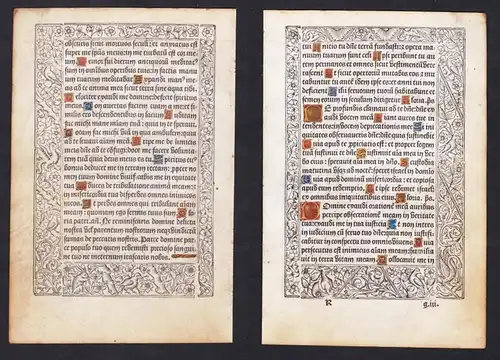 obscuris sicut mortuos seculi: et anxiatus est
super me spiritus meus in me turbatū est cor meū
Memor fui dierum antiquorū meditat
sum in omnibus operibus tuis: in factis manu
um tuarum meditabar Expandi manꝰ me
as ad te anima mea sicut terra sine aqua tibi
Velociter exaudi me domine: defecit spiritus
meus Non auertas faciem tuam a me: et
similis ero descendentibus in lacum Auditam
fac michi mane miam tuā: quia in te speraui
Notam fac michi viā in qua ambulem: quia
ad te leuaui animā meā Eripe me de inimicis
meis
tuā quia deus meus es tu Spiritus tu
us bonus deducet me in terram rectam: propter no
men tuum domine viuificabis me in equitate
tua Educes de tribulatione animā meam: et
in misericordia tua disperdes omnes inimicos
meos Et perdes omnes qui tribulant animā
meam: quoniam ego seruus tuus sum Gloria
patri. Ne reminiscaris domine delicta
nostra vel parentum nostrorum neqꝫ vindictā
sumas de peccatis nostris Parce domine par
ce populo tuo quem redemisti precioso sanguine
tuo ne ineternum irascaris nobis
tui Inicio tu dñe terrā fundasti: et opera ma
nuum tuarum sunt celi Ipsi peribunt tu au
tem permanes: et omnes sicut vestimentū vete
rascent Et sicut opertorium mutabis eos et mu
tabuntur: tu autē idem ipse es: et anni tui non
deficient Filii seruorum tuorū habitabunt: et
semen eorum in seculum dirigetur Gloria. ps
De profundis clamaui ad te dñe: dñe ex
audi vocem meā Fiant aures tue in
tendentes: in vocem deprecationis mee Si ini
quitates obseruaueris dñe: dñe quis sustinebit
Quia apud te propiciatio est: et propter legem
tuā sustinui te dñe Sustinuit aīa mea in ver
bo eius: sperauit aīa mea in dño A custodia
matutina vsqꝫ ad noctem: speret israel in dño
Quia apud dominū misericordia: et copiosa
apud eum redemptio Et ipse redimet israel:
ex omnibus iniquitatibus eius Gloria. ps
Domine exaudi orationē meā auribus
percipe obsecrationē meam in veritate
tua: exaudi me in tua iusticia Et non intres in
iudiciū cū seruo tuo: quia non iustificabitur in
conspectu tuo omnis viuens Quia
persecutus est inimicus aīam meam: humilia
uit in terra vitam meam Collocauit me in
g.iii.